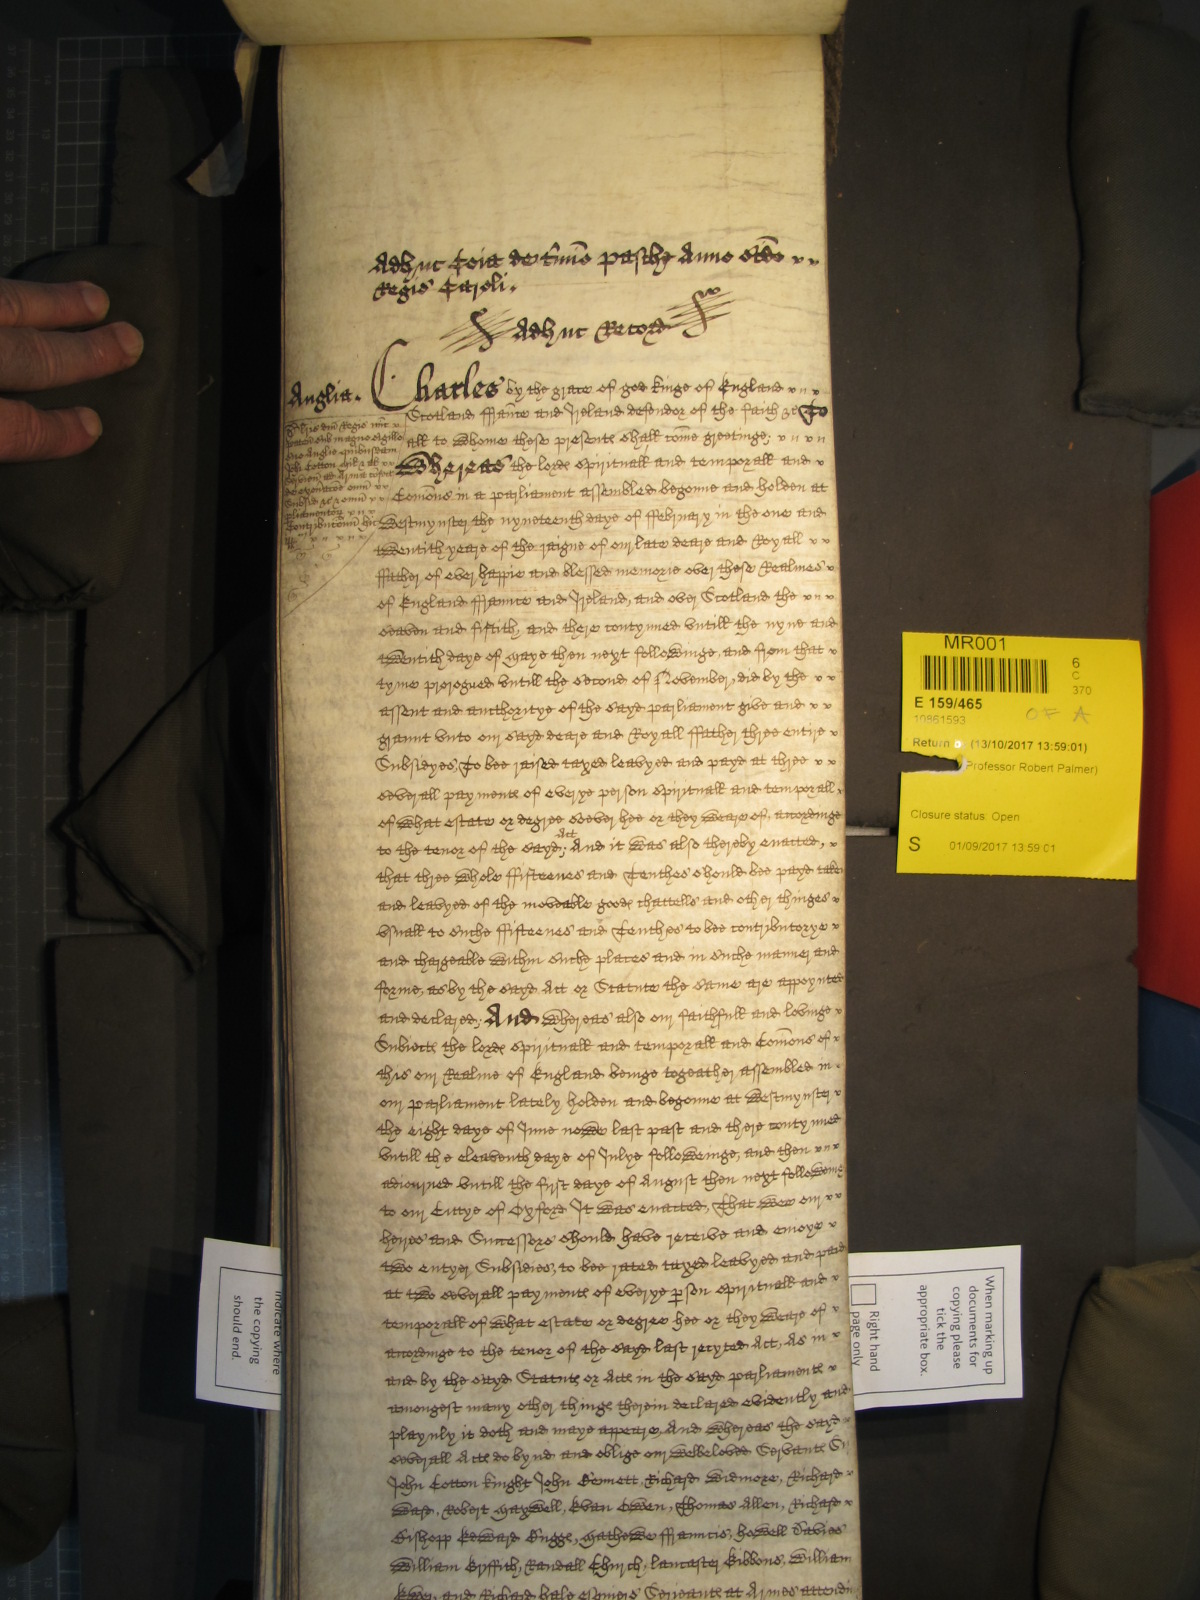 Adhuc Coia de Tmio Pasche Anno octo
Regis Caroli.
Adhuc Record
Anglia.
Charles by the grace of god Kinge of England
Scotland ffrance and Ireland defendor of the faith &c To
all to whome these presente shall come greetinge,
Whereas the lorde spirituall and temporall and
Comons in a parliament assembled begonne and holden at
Westmynster the nyneteenth daye of ffebruary in the one and
twentith yeare of the raigne of our late deare and Royall
ffather of ever happie and blessed memorie over these Realmes
of England ffrannce and Ireland, and over Scotland the
seaven and fiftith, and there contynued untill the nyne and
twentith daye of Maye then next followinge, and from that
tyme prorogued untill the second of November, did by the
assent and authoritye of the sayd parliament give and
graunt unto our sayd deare and Royall ffather three entire
Subsidyes, To bee raised taxed leavyed and payd at three
severall paymente of everye person spirituall and temporall
of what estate or degree soever hee or they weare of, accordinge
to the tenor of the sayd Act, And it was also thereby enacted,
that three whole ffifteenes and Tenthes should bee payd taken
and leavyed of the moveable goode chattells and other thinges
usuall to suche ffifteenes and Tenthes to bee contributorye
and chargeable within suche places and in suche manner and
forme, as by the sayd Act or Statute the same are appoynted
and declared; And whereas also our faithfull and lovinge
Subiecte the lorde spirituall and temporall and Comons of
this our Realme of England beinge togeather assembled in
our parliament lately holden and begonne at Westmynster
the eight daye of June nowe last past and there contynued
untill the eleaventh daye of Julye followeinge, and then
adiourned untill the first daye of August then next followeing
to our Cittye of Oxford It was enacted, That wee our
heires and Successors should have receive and enioye
two entyer Subsidies, to bee rated taxed leavyed and paid
at two severall paymente of everye pson spirituall and
temporall of what estate or degree hee or they weare of
accordinge to the tenor of the sayd last recyted Act, As in
and by the sayd Statute or Acte in the sayd parliamente
amongest many other thinge therein declared evidently and
playnly it doth and maye appeare, And whereas the sayd
severall Acte do bynd and oblige our welbeloved Servante Sr
John Cotton knight John Bennett, Richard Widmore, Richard
Ward, Robert Maxwell, Evan Owen, Thomas Allen, Richard
Bishopp Edward Bugge, Mathewe ffrancis, howell Davies
William Griffith, Randall Church, lancaster Gibbons, William
and Richard hale esquiers Serieante at Armes attendin
MR001
6
C
370
E 159/465
10861593
OF A
Return by (13/10/2017 13:59:01)
Professor Robert Palmer)
Closure status: Open
S 01/09/2017 13:59:01
indicate where
the copying
should end.
When marking up
documents for
copying please
tick the
appropriate box.
Right hand
page only